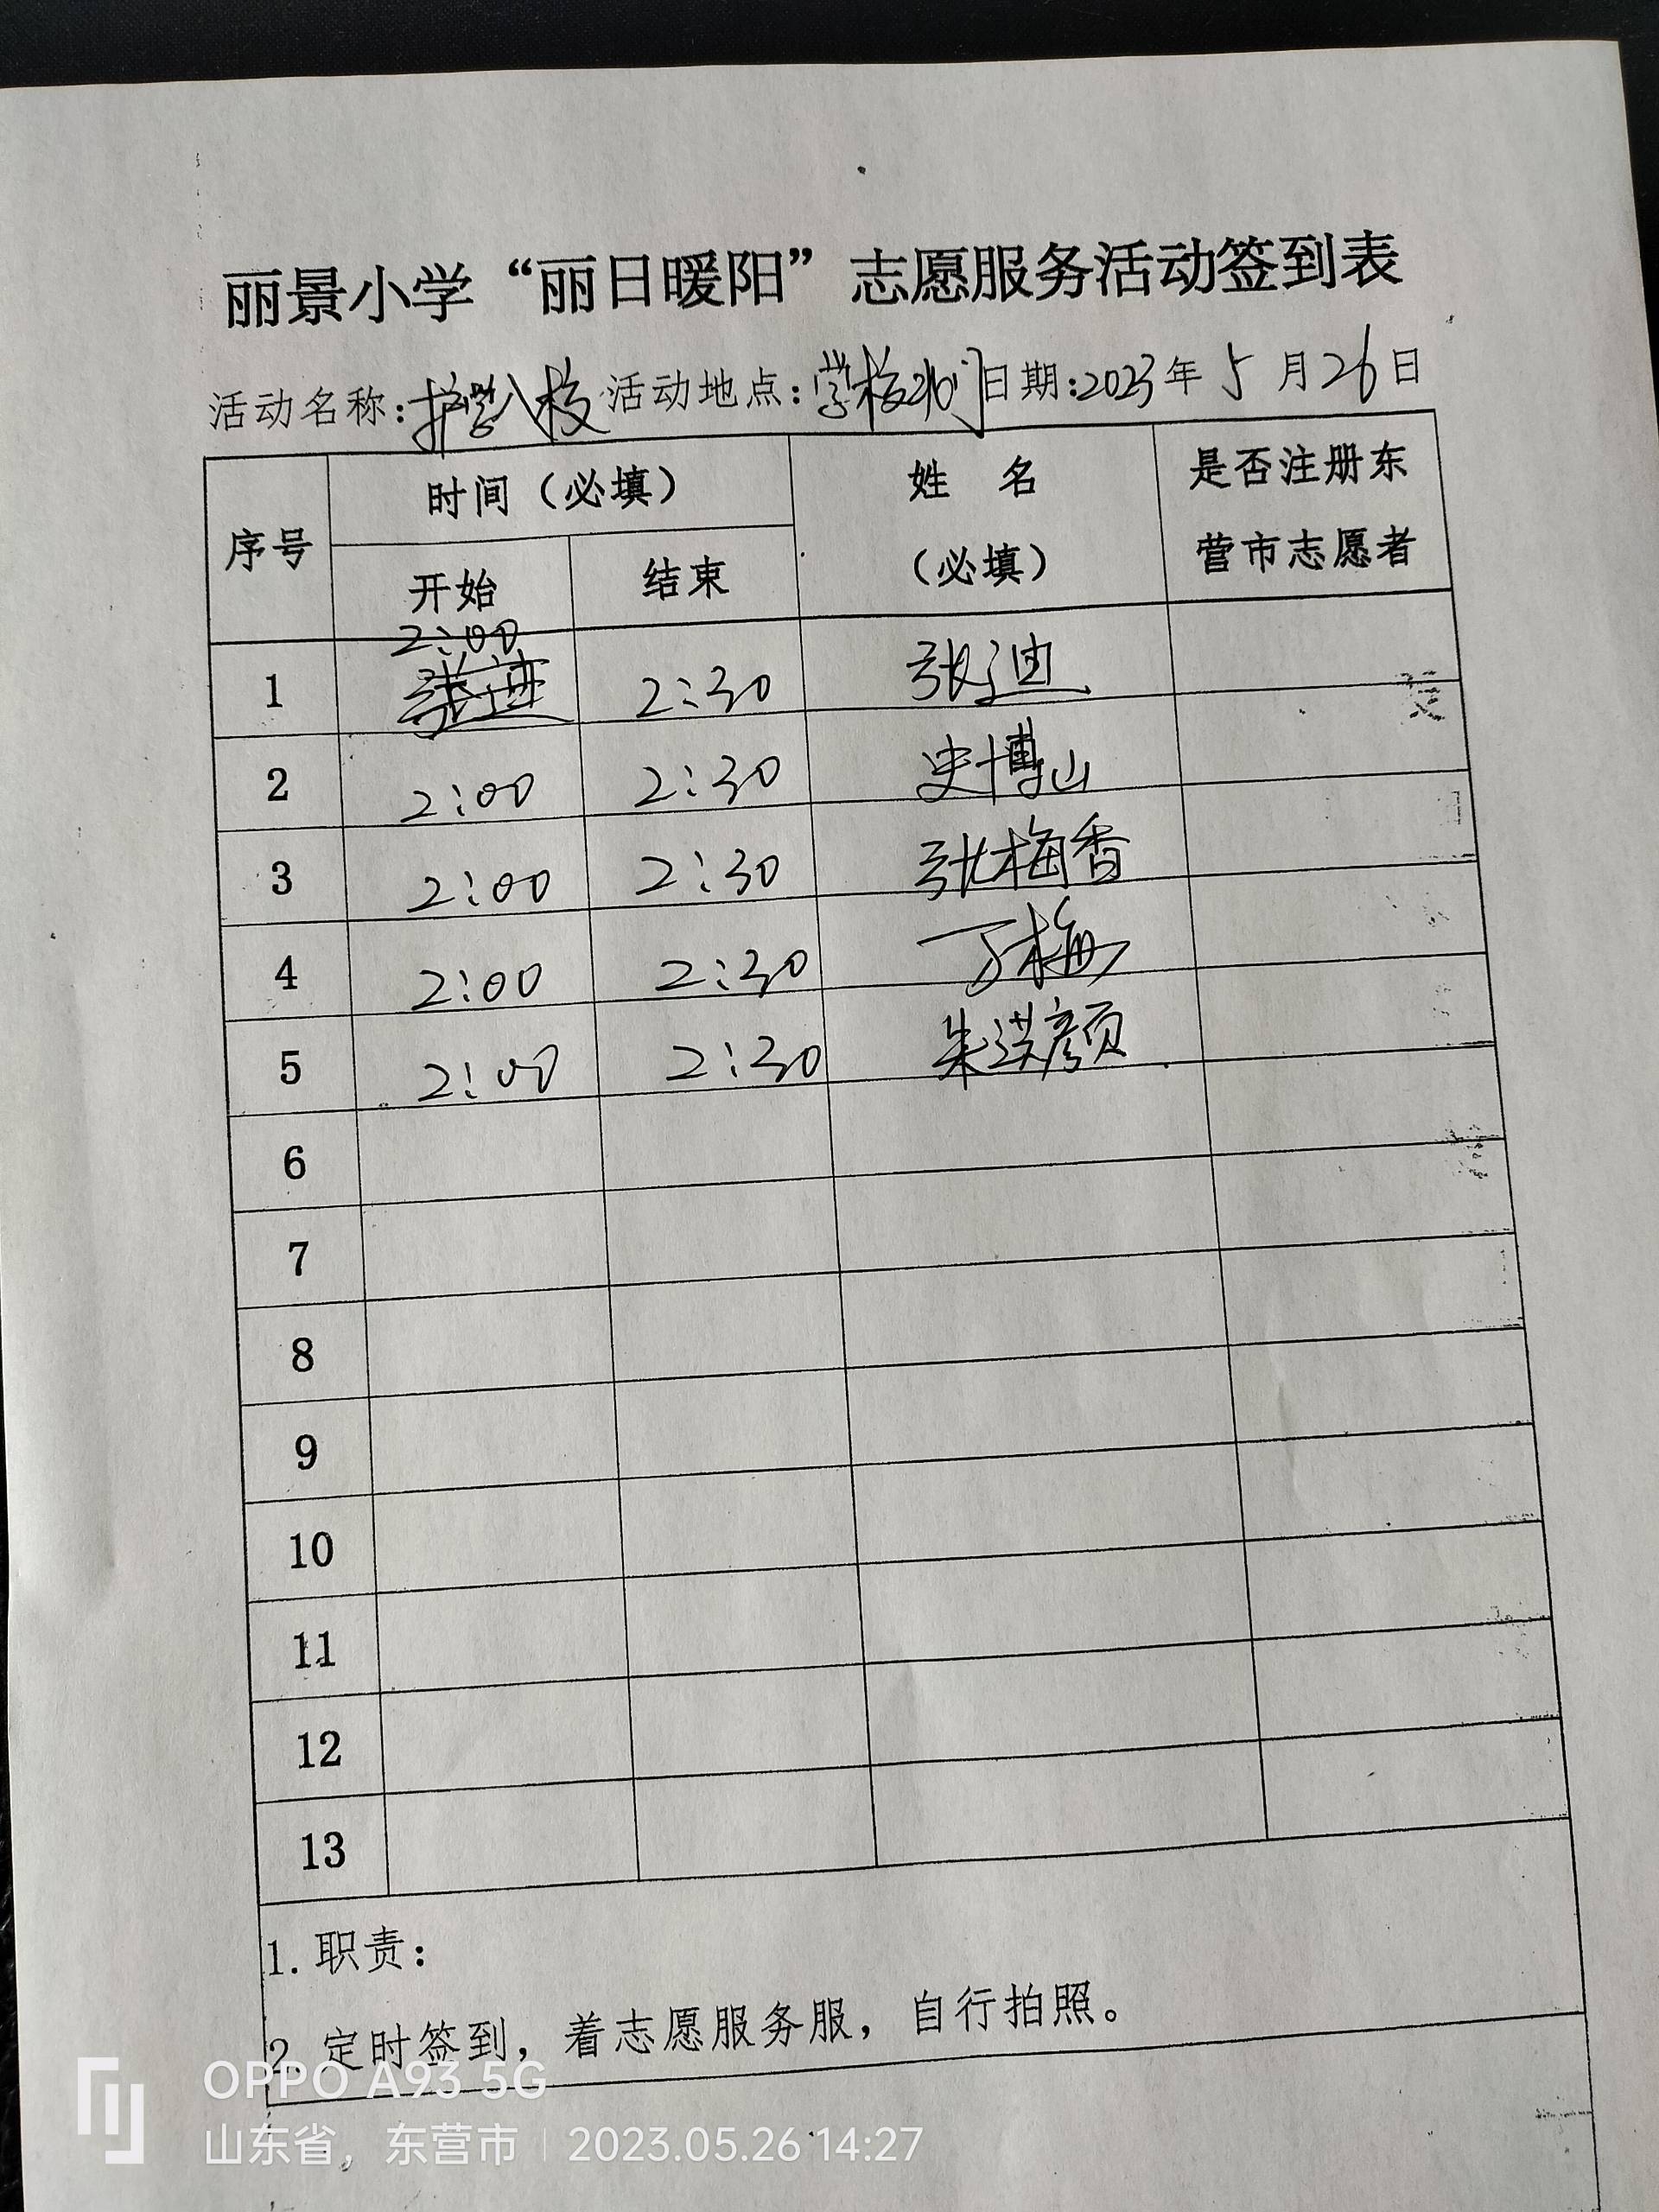 丽景小学“丽日暖阳”志愿服务活动签到表
活动名称:护学入校 活动地点:学校北门 日期:2023年5月26日
序号 时间（必填） 姓 名（必填） 是否注册东营市志愿者
开始 结束
1 2:00 2:30 张迪
2 2:00 2:30 史博山
3 2:00 2:30 张梅香
4 2:00 2:30 丁梅
5 2:00 2:30 朱洪颜
6
7
8
9
10
11
12
13
1.职责：
2.定时签到，着志愿服务服，自行拍照。
OPPO A93 5G
山东省，东营市 | 2023.05.26 14:27